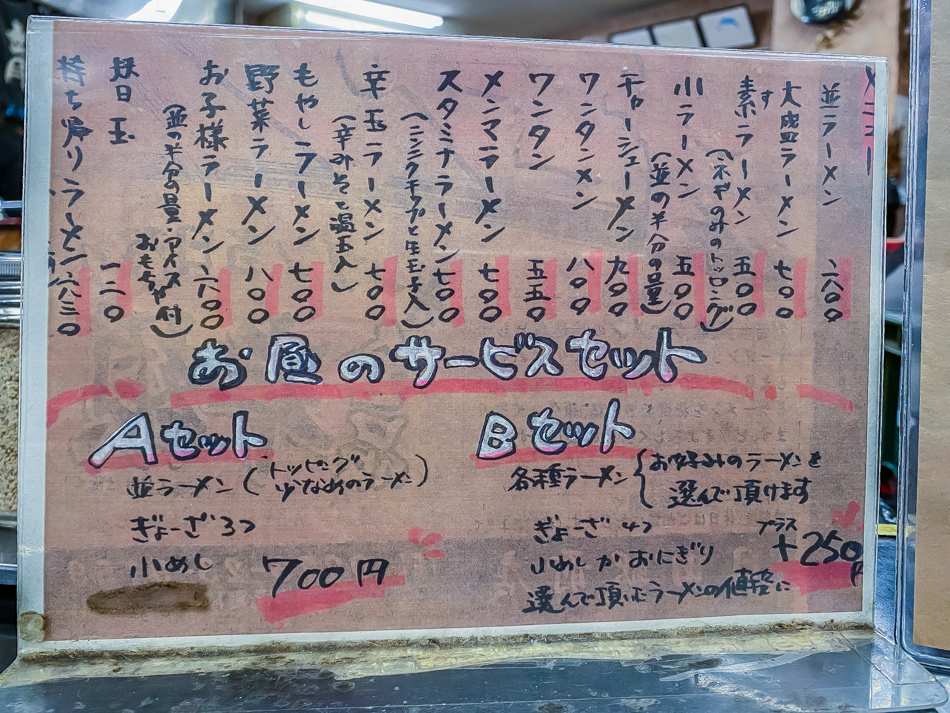 メニュー
並ラーメン 六〇〇
大盛ラーメン 七〇〇
素ラーメン 五〇〇
す
(ネギのみのトッピング)
小ラーメン 五〇〇
(並の半分の量)
チャーシューメン 九〇〇
ワンタンメン 八〇〇
ワンタン 五五〇
メンマラーメン 七〇〇
スタミナラーメン 七〇〇
(ニンニクチップと生玉子入)
辛玉ラーメン 七〇〇
(辛みそと温玉入)
もやしラーメン 七〇〇
野菜ラーメン 八〇〇
お子様ラーメン 六〇〇
(並の半分の量・アイス
おもちゃ付)
替玉 一二〇
持ち帰りラーメン 六三〇
お昼のサービスセット
Aセット
並ラーメン(トッピング
少なめのラーメン)
ぎょーざ3つ
小めし
700円
Bセット
各種ラーメン{お好みのラーメンを
選んで頂けます
ぎょーざ4つ
小めしかおにぎり
選んで頂いたラーメンの値段に
プラス
+250円